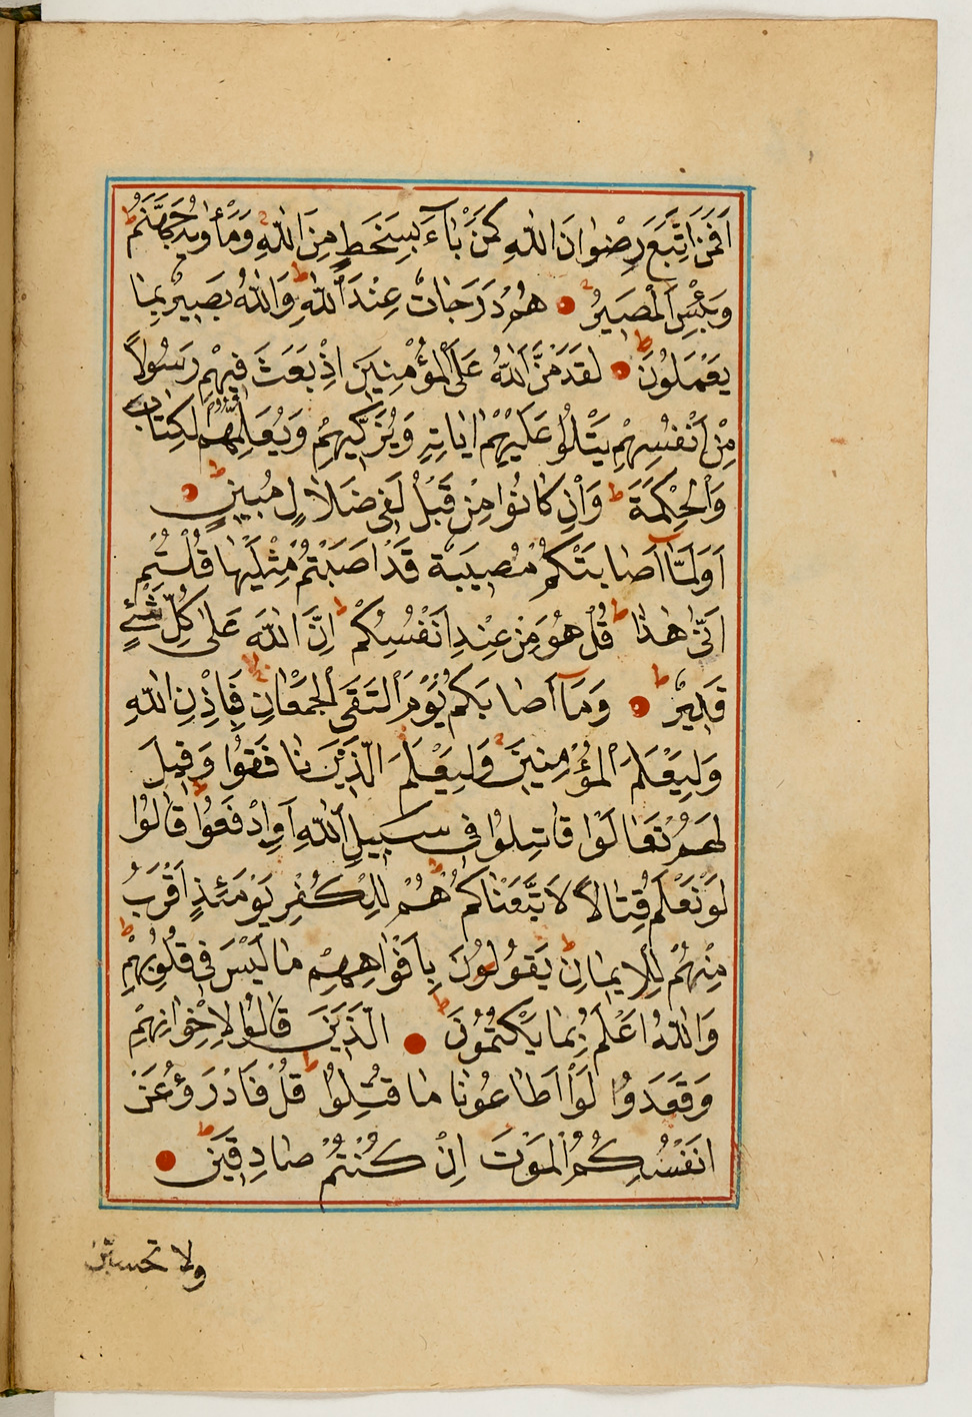 اَفَمَنِ اتَّبَعَ رِضْوَانَ اللّٰهِ كَمَنْ بَآءَ بِسَخَطٍ مِنَ اللّٰهِ وَمَأْوٰيهُ جَهَنَّمُ ط
وَبِئْسَ الْمَصِيرُ هُمْ دَرَجَاتٌ عِنْدَ اللّٰهِ ط وَاللّٰهُ بَصِيرٌ بِمَا
يَعْمَلُونَ ط لَقَدْ مَنَّ اللّٰهُ عَلَى الْمُؤْمِنِينَ اِذْ بَعَثَ فِيهِمْ رَسُولًا
مِنْ اَنْفُسِهِمْ يَتْلُوا عَلَيْهِمْ اٰيَاتِهِ وَيُزَكِّيهِمْ وَيُعَلِّمُهُمُ الْكِتَابَ
وَالْحِكْمَةَ ط وَاِنْ كَانُوا مِنْ قَبْلُ لَفِى ضَلَالٍ مُبِينٍ ط
اَوَلَمَّآ اَصَابَتْكُمْ مُصِيبَةٌ قَدْ اَصَبْتُمْ مِثْلَيْهَا قُلْتُمْ
اَنّٰى هٰذَا ط قُلْ هُوَ مِنْ عِنْدِ اَنْفُسِكُمْ ط اِنَّ اللّٰهَ عَلٰى كُلِّ شَئْءٍ
قَدِيرٌ ط وَمَآ اَصَابَكُمْ يَوْمَ الْتَقَى الْجَمْعَانِ فَبِاِذْنِ اللّٰهِ
وَلِيَعْلَمَ الْمُؤْمِنِينَ وَلِيَعْلَمَ الَّذِينَ نَافَقُوا وَقِيلَ
لَهُمْ تَعَالَوْا قَاتِلُوا فِى سَبِيلِ اللّٰهِ اَوِ ادْفَعُوا ط قَالُوا
لَوْ نَعْلَمُ قِتَالًا لَاتَّبَعْنَاكُمْ ط هُمْ لِلْكُفْرِ يَوْمَئِذٍ اَقْرَبُ
مِنْهُمْ لِلْاِيمَانِ ط يَقُولُونَ بِاَفْوَاهِهِمْ مَا لَيْسَ فِى قُلُوبِهِمْ ط
وَاللّٰهُ اَعْلَمُ بِمَا يَكْتُمُونَ ط الَّذِينَ قَالُوا لِاِخْوَانِهِمْ
وَقَعَدُوا لَوْ اَطَاعُونَا مَا قُتِلُوا ط قُلْ فَادْرَؤُا عَنْ
اَنْفُسِكُمُ الْمَوْتَ اِنْ كُنْتُمْ صَادِقِينَ ط
ولا تحسبن